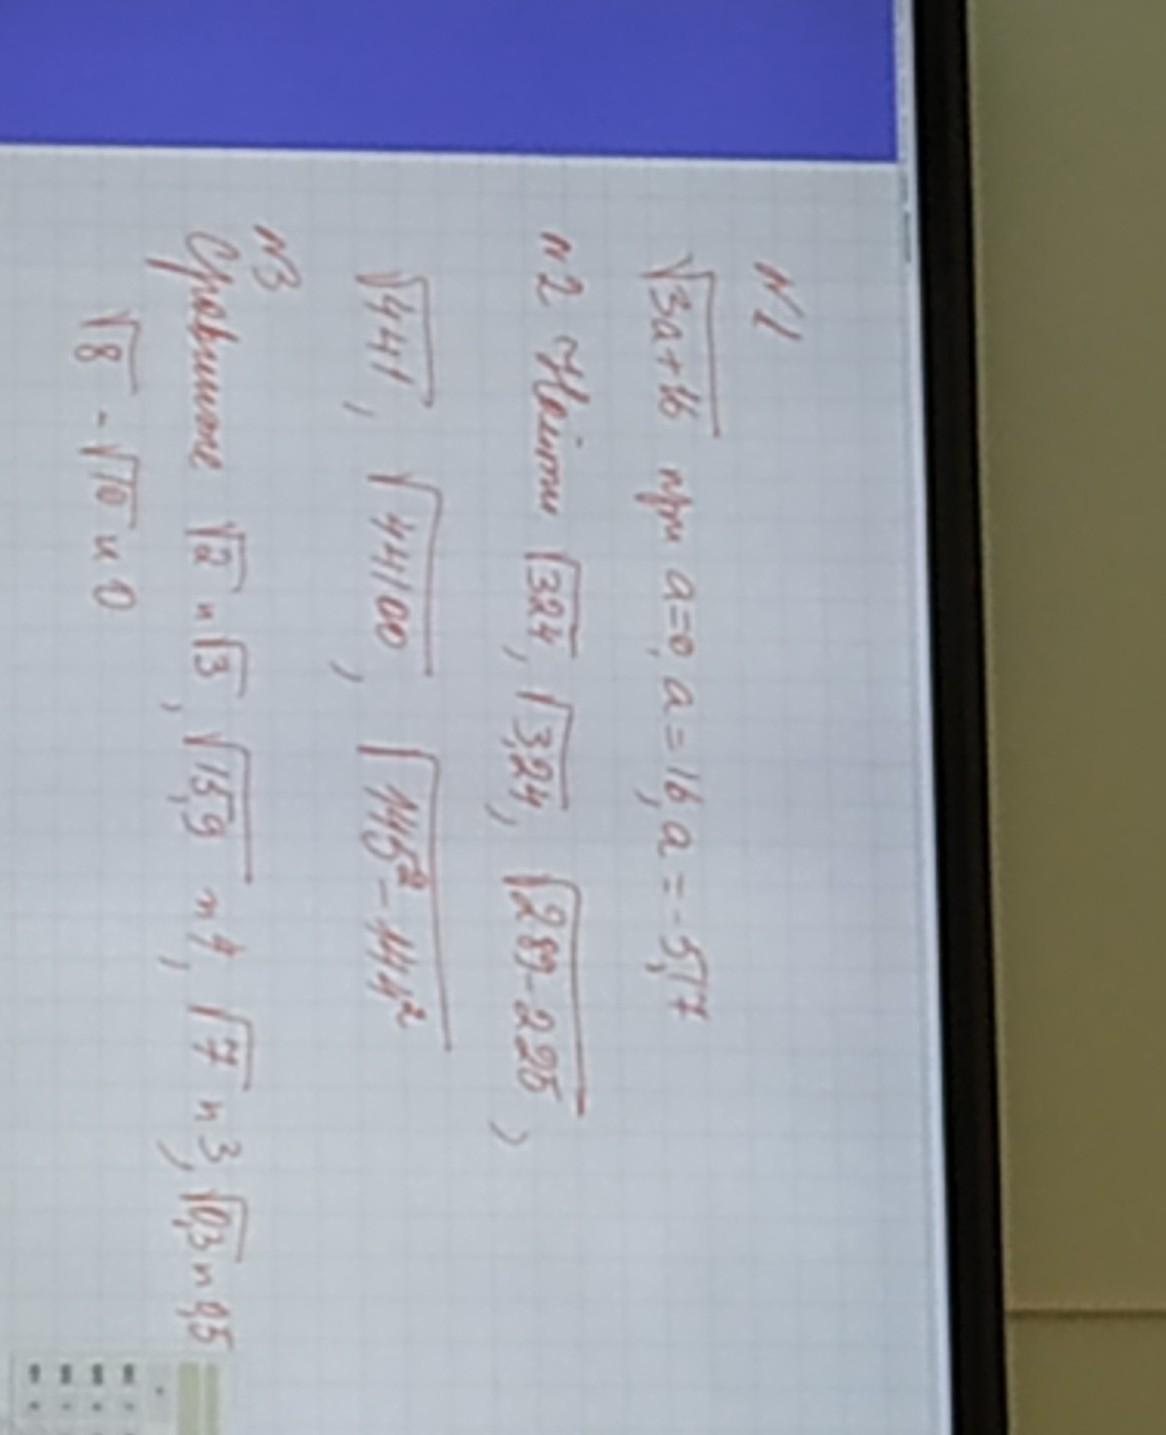 N1
√3a+16 при a=0, a=16, a=-5,17
N2 Найти √324, √3,24, √289-225,
√441, √44100, √145²-144²
N3
Сравните √2 и √3, √15,9 и 4, √7 и 3, √0,3 и 0,5
√8 - √10 и 0